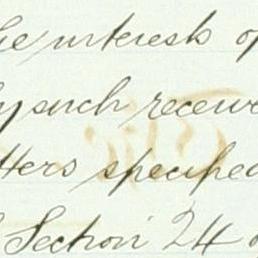 he interests of
y such receive
tters specified
Section 24